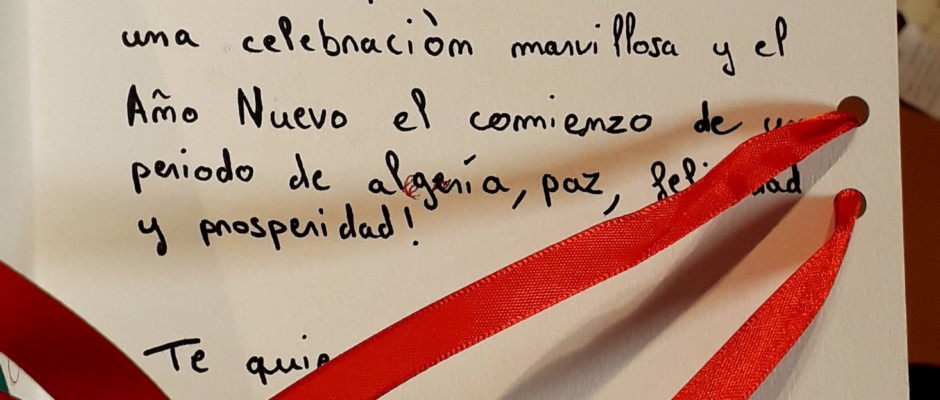 una celebraciòn maravillosa y el
Año Nuevo el comienzo de
periodo de algería, paz,
y prosperidad!
Te